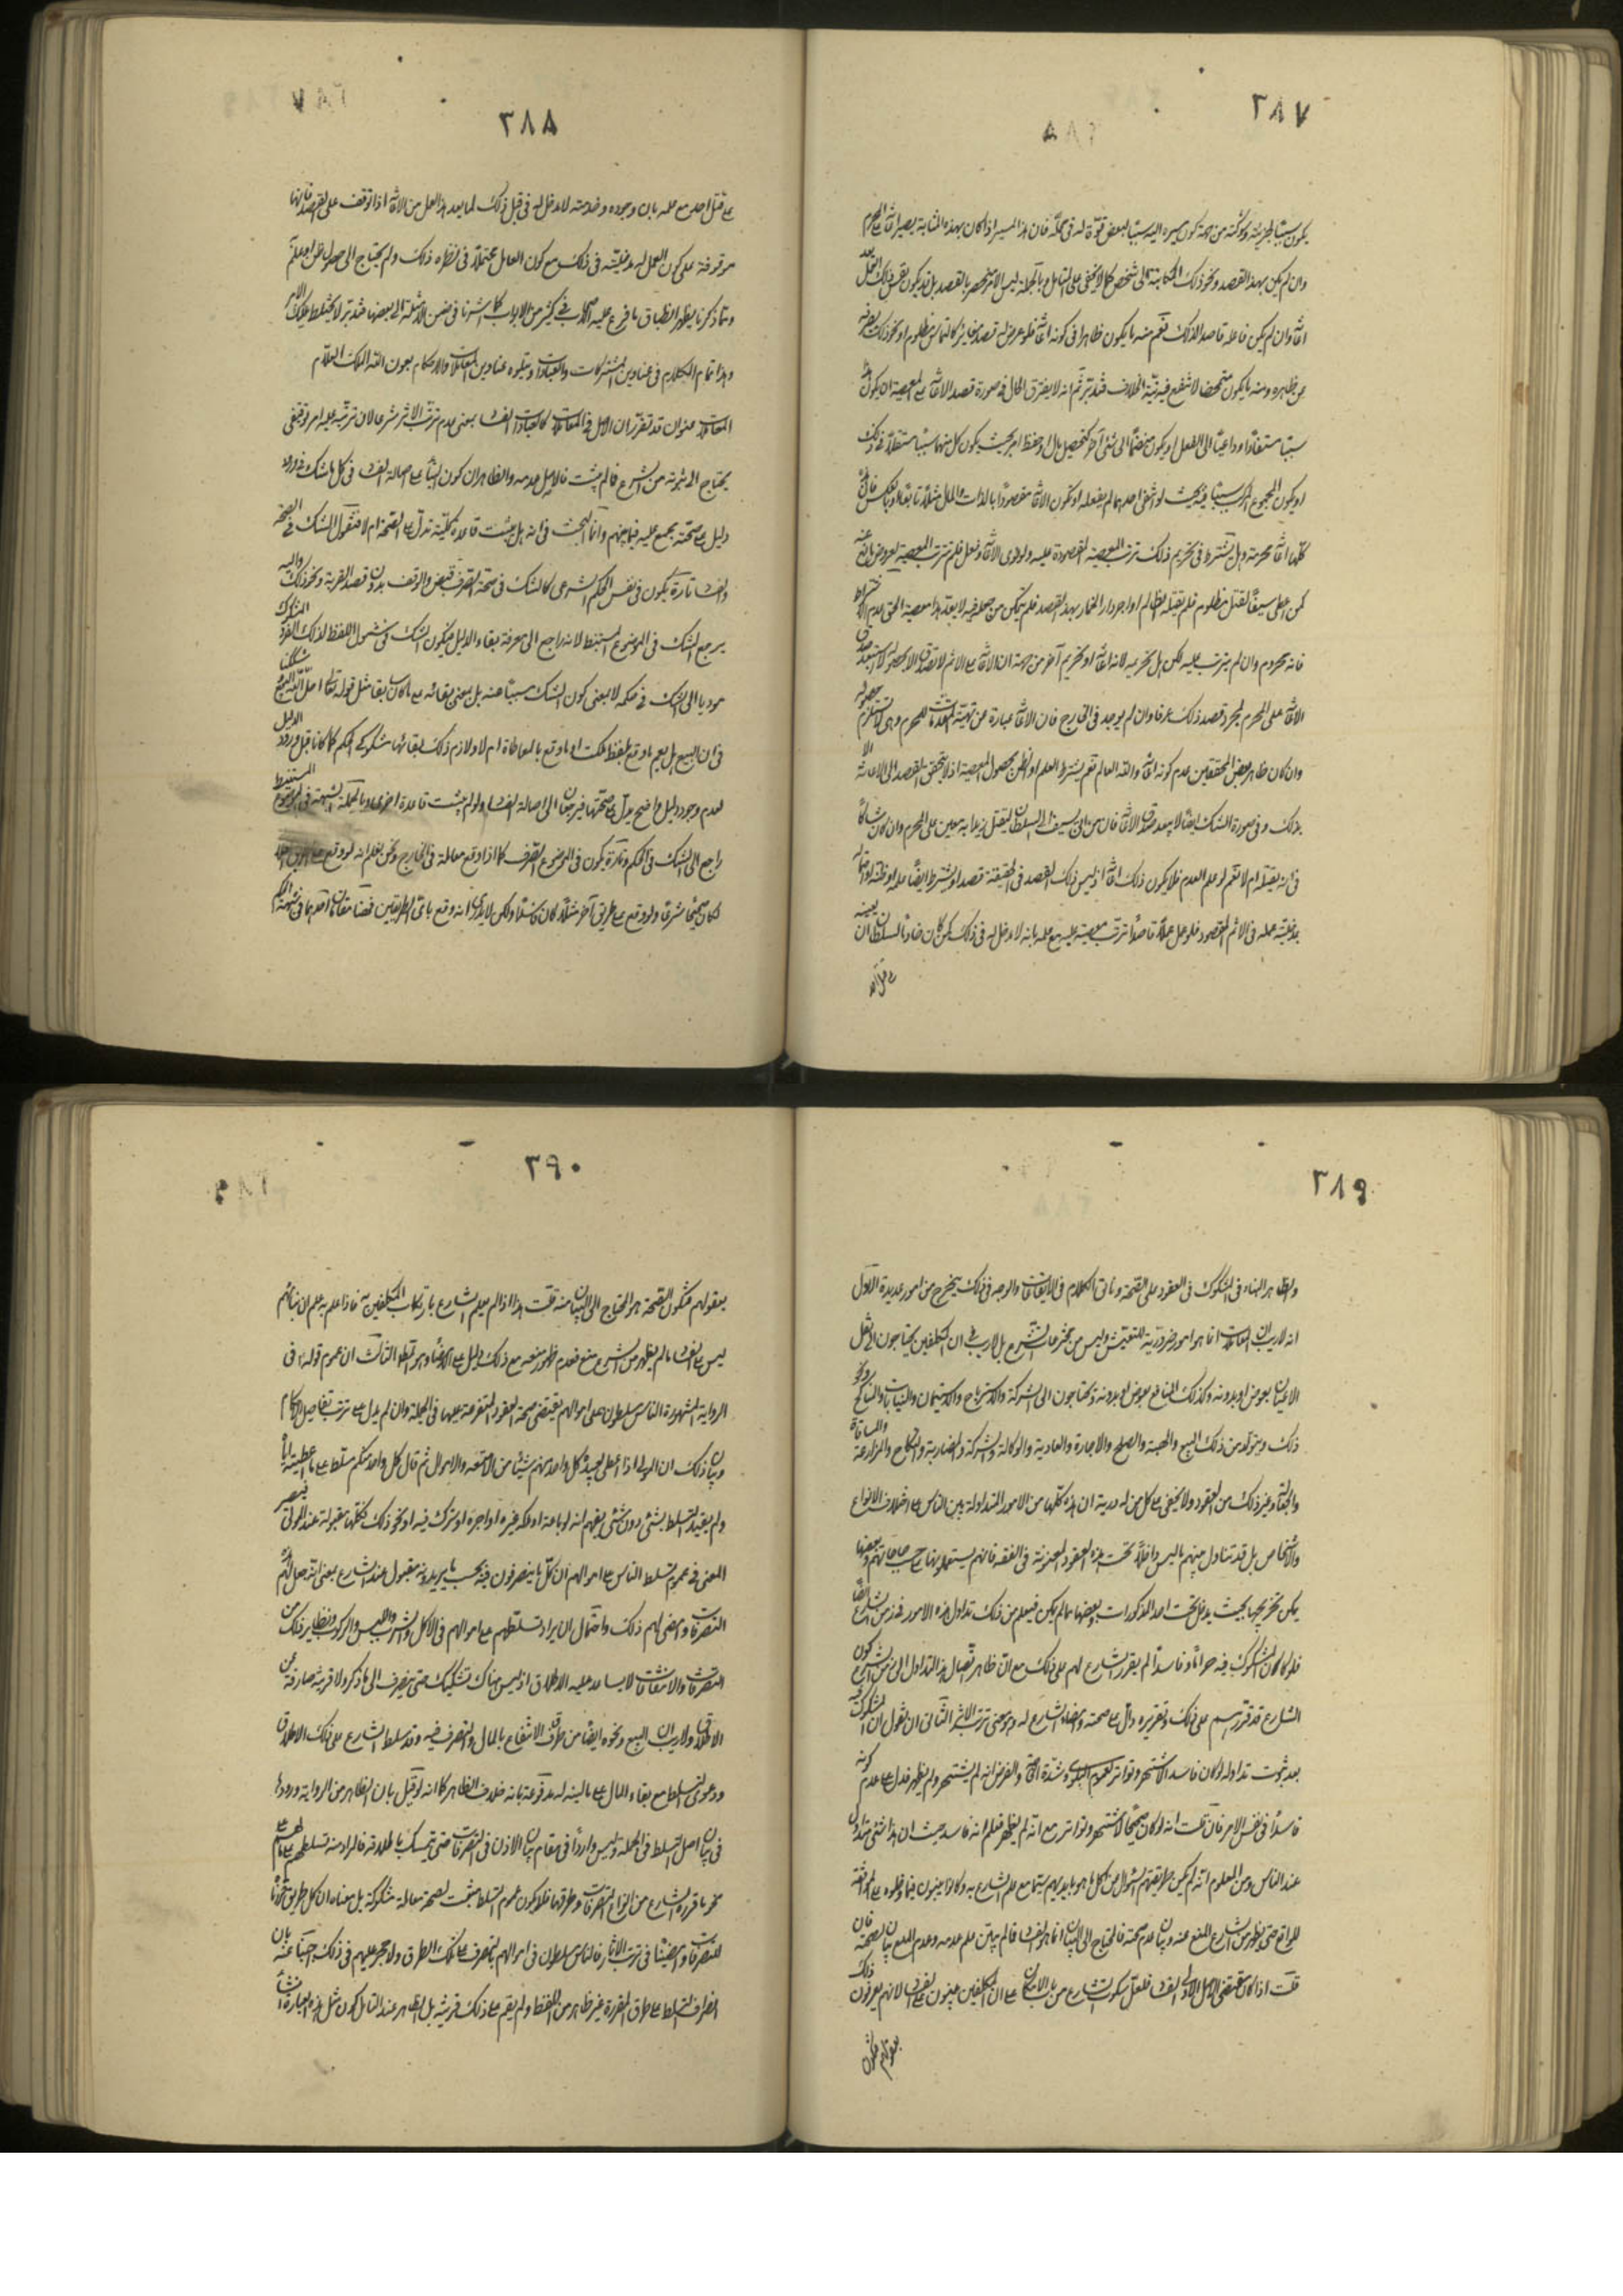 ٢٨٧
يكون سببا لجزيته وشوكته من جهة كون سيره اليه سببا لبعض قوة له في محله فان هذا المسير اذا كان بهذه المثابة يصير اعانة على المحرم
وان لم يكن بهذا القصد ونحو ذلك الكتابة الى شخص كما لا يخفى على المتامل وبالجملة ليس الامر منحصرا بالقصد بل قد يكون نفس ذلك العمل يعد
اعانة وان لم يكن فاعله قاصدا لذلك نعم منه ما يكون ظاهرا في كونه اعانة فلو عرض له قصد مغاير كالتماس مظلوم او نحو ذلك يصرفه
عن ظاهره ومنه ما يكون متمحضا لا تنفع فيه نية الخلاف فتدبر ثم انه لا يفترق الحال في صورة قصد الاعانة على المعصية ان يكون هذا
سببا مستقلا وداعيا الى الفعل او يكون منضما الى شئ آخر كتحصيل مال او حفظ امر بحيث يكون كل منهما سببا مستقلا في ذلك
او يكون المجموع المركب سببا فيه بحيث لو انتفى احدهما لم يفعله او تكون الاعانة مقصودا بالذات والمال مثلا تابعا او بالعكس فان هذه
كلها اعانة محرمة وهل يشترط في تحريم ذلك ترتب المعصية المقصودة عليه ولو نوى الاعانة وفعل فلم تترتب المعصية لعروض مانع عنه
كمن اعطى سيفا لقتل مظلوم فلم يقبله الظالم او اجر دارا لخمار بهذا القصد فلم يتمكن من جعله فيه لا يعد هذا معصية الحق عدم الاشتراط
فانه محروم وان لم يترتب عليه لكن هل تحريمه لانه اعانة او تحريم آخر من جهة ان الاعانة على الاثم لا تصدق الا بحصوله لا استبعد صدق
الاعانة على المحرم لمجرد قصد ذلك عرفا وان لم يوجد في الخارج فان الاعانة عبارة عن تهيئة المقدمات للمحرم وهي لا تستلزم حصوله
وان كان ظاهر بعض المحققين عدم كونه اعانة والله العالم نعم يشترط العلم او الظن بحصول المعصية اذ لا يتحقق القصد الى الاعانة الا
بذلك وفي صورة الشك ايضا لا يبعد صدق الاعانة فان من اتى بسيف الى السلطان ليقتل زيدا به معين على المحرم وان كان شاكا
في انه يقبله ام لا نعم لو علم العدم فلا يكون ذلك اعانة اذ ليس ذلك القصد في الحقيقة قصدا ويشترط ايضا علمه او ظنه او احتماله
بمدخلية عمله في الاثم المقصود فلو عمل عملا قاصدا ترتب معصية عليه مع علمه بانه لا دخل له في ذلك كمن كان خادما لسلطان ان يعينه
على قتل احد
٢٨٨
على قتل احد مع علمه بان وجوده وخدمته لا دخل له في قبل ذلك لما يعد هذا العمل من الاعانة اذا توقف على القصد فانها
موقوفة على كون العمل له مدخلية في ذلك مع كون العامل محتملا في نظره ذلك ولم يحتاج الى حصول ظن او علم
ومما ذكرنا يظهر انطباق ما فرع عليه الاصحاب في كثير من الابواب كما اشرنا في ضمن الامثلة الى بعضها فتدبر لا يختلط عليك الامر
وهذا تمام الكلام في عناوين المشتركات والعبادات ويتلوه عناوين المعاملات والاحكام بعون الله الملك العلام
المعاملات عنوان قد تقرر ان الاصل في المعاملات كالعبادات الفساد بمعنى عدم ترتب الاثر شرعا لان ترتبه عليه امر توقيفي
يحتاج الى ثبوته من الشرع فما لم يثبت فالاصل عدمه والظاهر ان كون البناء على اصالة الفساد في كل ما شك في ورود
دليل على صحته مجمع عليه فيما بينهم وانما البحث في انه هل يثبت قاعدة كلية تدل على الصحة ام لا فنقول الشك في الصحة
والفساد تارة يكون في نفس الحكم الشرعي كالشك في صحة التصرف قبض والوقف بدون قصد القربة ونحو ذلك واليه
يرجع الشك في الموضوع المستنبط لانه راجع الى معرفة بقاء الدليل فيكون الشك في شمول اللفظ لذلك الفرد المشكوك
موديا الى الشك في حكمه لا بمعنى كون الشك مسببا عنه بل بمعنى بقائه على ما كان سابقا مثل قوله تعالى احل الله البيع شككنا
في ان البيع هل يعم ما وقع بلفظ ملكت او ما وقع بالمعاطاة ام لا ولازم ذلك بقائها مشكوكي الحكم كما كانا قبل ورود الدليل
لعدم وجود دليل واضح يدل على صحتها فيرجعان الى اصالة الفساد ولو لم يثبت قاعدة اخرى وبالجملة الشبهة في الموضوع المستنبط
راجع الى الشك في الحكم وتارة يكون في الموضوع الصرف كما اذا وقع معاملة في الخارج ونحن نعلم انه لو وقع على طريق
لكان صحيحا شرعا ولو وقع على طريق آخر مثلا كان فاسدا ولكن لا ندري انه وقع باي الطريقين فهنا مقامان احدهما في شبهة الحكم
٢٨٩
والظاهر البناء في المشكوك في العقود على الصحة وياتي الكلام في الايقاعات والوجه في ذلك يتخرج من امور عديدة الاول
انه لا ريب ان المعاملات انما هو امور ضرورية للتعيش وليس من مخترعات الشرع بلا ريب في ان المكلفين يحتاجون الى نقل
الاعيان بعوض او بدونه وكذلك المنافع بعوض او بدونه ويحتاجون الى الشركة والاسترباح والاستيمان والنيابات والتناكح ونحو
ذلك ويتولد من ذلك البيع والهبة والصلح والاجارة والعارية والوكالة والشركة والمضاربة والنكاح والمزارعة والمساقاة
والجعالة وغير ذلك من العقود ولا يخفى على كل من له درية ان هذه كلها من الامور المتداولة بين الناس على اختلاف الانواع
والاشخاص بل قد تتداول منهم ما ليس داخلا تحت هذه العقود المعنونة في الفقه فانهم يستعملونها على حسب حاجاتهم وبعضها
يمكن تخريجها بحيث يدخل تحت احد المذكورات وبعضها مما لم يكن فيعلم من ذلك تداول هذه الامور في زمن الشارع ايضا
فلو كان المشكوك فيه حراما وفاسدا لم يقرر الشارع لهم على ذلك مع ان ظاهر اتصال هذا التداول الى زمن الشرع كون
الشارع قد قررهم على ذلك وتقريره دال على صحته وامضاء الشارع له وهو معنى ترتب الاثر الثاني ان نقول ان المشكوك فيه
بعد ثبوت تداوله لو كان فاسدا لاشتهر وتواتر لعموم البلوى وشدة الحاجة والفرض انه لم يشتهر ولم يظهر فدل على عدم كونه
فاسدا في نفس الامر فان قلت انه لو كان صحيحا لاشتهر وتواتر مع انه لم يظهر فعلم انه فاسد حيث ان هذا شئ متداول
عند الناس ومن المعلوم انه لم يكن طريقتهم السؤال عن كل ما هو بايديهم سيما مع علم الشارع به وكانوا يبنون فيما فعلوه على الموافقة
للواقع حتى يظهر من الشارع المنع عنه وبيان عدم صحته فالمحتاج الى البيان انما هو الفساد فما لم يبين علم عدمه وعدم المنع بيان لصحته فان
قلت اذا كان مقتضى الاصل الاولى الفساد فلعل سكوت الشارع من باب الاتكال على ان المكلفين يبنون على الفساد لانهم يعرفون ذلك
بعقولهم فيكون
٢٩٠
بعقولهم فيكون الصحة هو المحتاج الى البيان منه قلت هذا اذا لم يعلم الشارع بارتكاب المكلفين به فاذا علم به علم ان بنائهم
ليس على الفساد ما لم يظهر من الشرع منع فعدم ظهور منعه مع ذلك دليل على الامضاء وهو المطلوب الثالث ان عموم قوله في
الرواية المشهورة الناس مسلطون على اموالهم يقتضى صحة العقود المتفرعة عليها في الجملة وان لم يدل على ترتب تفاصيل الاحكام
وبيان ذلك ان المولى اذا اعطى لعبيده كل واحد منهم شيئا من الامتعة والاموال ثم قال كل واحد منكم مسلط على ما اعطيته اياه
ولم يقيد التسلط بشئ دون شئ يفهم انه لو باعه او ملكه غيره او اجره او شرك فيه او نحو ذلك فكلها مقبولة عند المولى فيصير
المعنى في عموم تسلط الناس على اموالهم ان كل ما يتصرفون فيه بحسب ما يريدونه مقبول عند الشارع بمعنى انه جعل لهم هذه
التصرفات وامضى لهم ذلك واحتمال ان يراد تسلطهم على اموالهم في الاكل والشرب واللبس والركوب ونظاير ذلك من
التصرفات والانتفاعات لا يساعد عليه الاطلاق اذ ليس هناك تشكيك حتى ينصرف الى ما ذكر ولا قرينة صارفة عن
الاطلاق ولا ريب ان البيع ونحوه ايضا من طرق الانتفاع بالمال والتصرف فيه وقد سلط الشارع على ذلك الاطلاق
ودعوى التسلط مع بقاء المال على ماليته له مدفوعة بانه خلاف الظاهر كما انه لو قيل بان الظاهر من الرواية ورودها
في بيان اصل التسلط في الجملة وليس واردا في مقام بيان الاذن في التصرفات حتى يتمسك باطلاقه فالمراد منه تسلطهم على اموالهم على
نحو ما قرره الشارع من انواع التصرفات وطرقها فلا يكون عموم التسلط مثبت لصحة معاملة مشكوكة بل معناه ان كل طريق قررنا
للتصرفات وامضينا في ترتب الاثار فالناس مسلطون في اموالهم بالتصرف على تلك الطرق ولا حجر عليهم في ذلك اجبنا عنه بان
انصراف التسلط على طرق المقررة غير ظاهر من اللفظ ولم يقم على ذلك قرينة بل الظاهر عند التامل كون مثل هذه العبارة انشاء